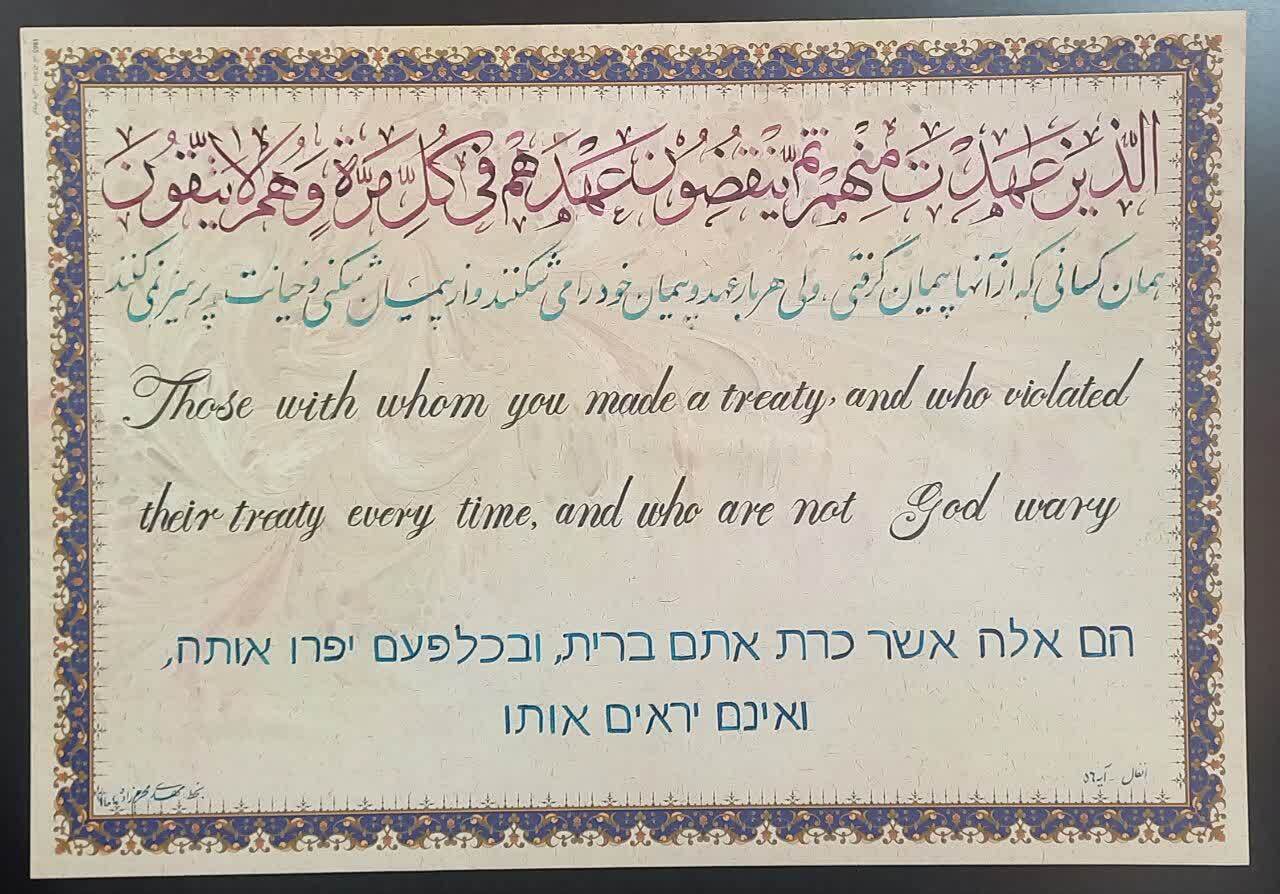 الَّذينَ عَاهَدْتَ مِنْهُمْ ثُمَّ يَنْقُضُونَ عَهْدَهُمْ فِي كُلِّ مَرَّةٍ وَهُمْ لَا يَتَّقُونَ
همان کسانی که از آنها پیمان گرفتی، ولی هر بار عهد و پیمان خود را می شکنند و از پیمان شکنی و خیانت پرهیز نمی کنند
Those with whom you made a treaty, and who violated
their treaty every time, and who are not God wary
הם אלה אשר כרת אתם ברית, ובכלפעם יפרו אותה,
ואינם יראים אותו
انفال - آیه ٥٦
بخط